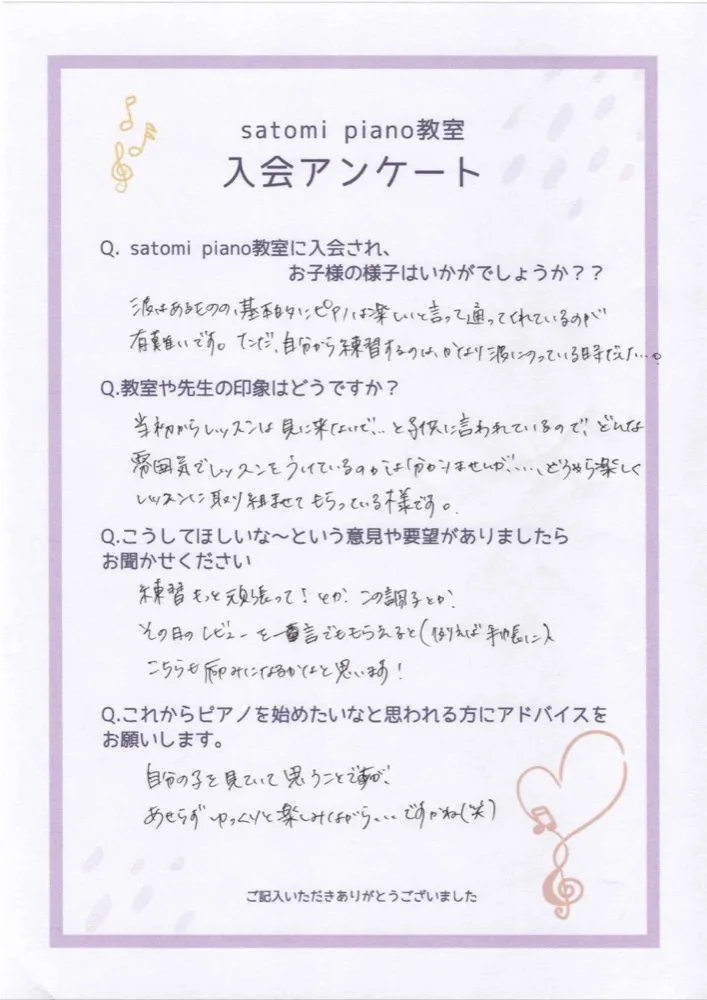 satomi piano教室
入会アンケート
Q. satomi piano教室に入会され、
お子様の様子はいかがでしょうか？？
波はあるものの、基本的にピアノは楽しいと言って通ってくれているのが
有難いです。ただ、自分から練習するのは、かなり波にのっている時だけ…。
Q.教室や先生の印象はどうですか？
当初からレッスンは見に来ないで…と子供に言われているので、どんな
雰囲気でレッスンをうけているのかは分かりませんが、…、どうやら楽しく
レッスンに取り組ませてもらっている様です。
Q.こうしてほしいな〜という意見や要望がありましたら
お聞かせください
練習もっと頑張って！とか、この調子とか、
その日のレビューを一言でももらえると(例えば手帳に)
こちらも励みになるかなと思います！
Q.これからピアノを始めたいなと思われる方にアドバイスを
お願いします。
自分の子を見ていて思うことですが、
あせらずゆっくりと楽しみながら…ですかね(笑)
ご記入いただきありがとうございました